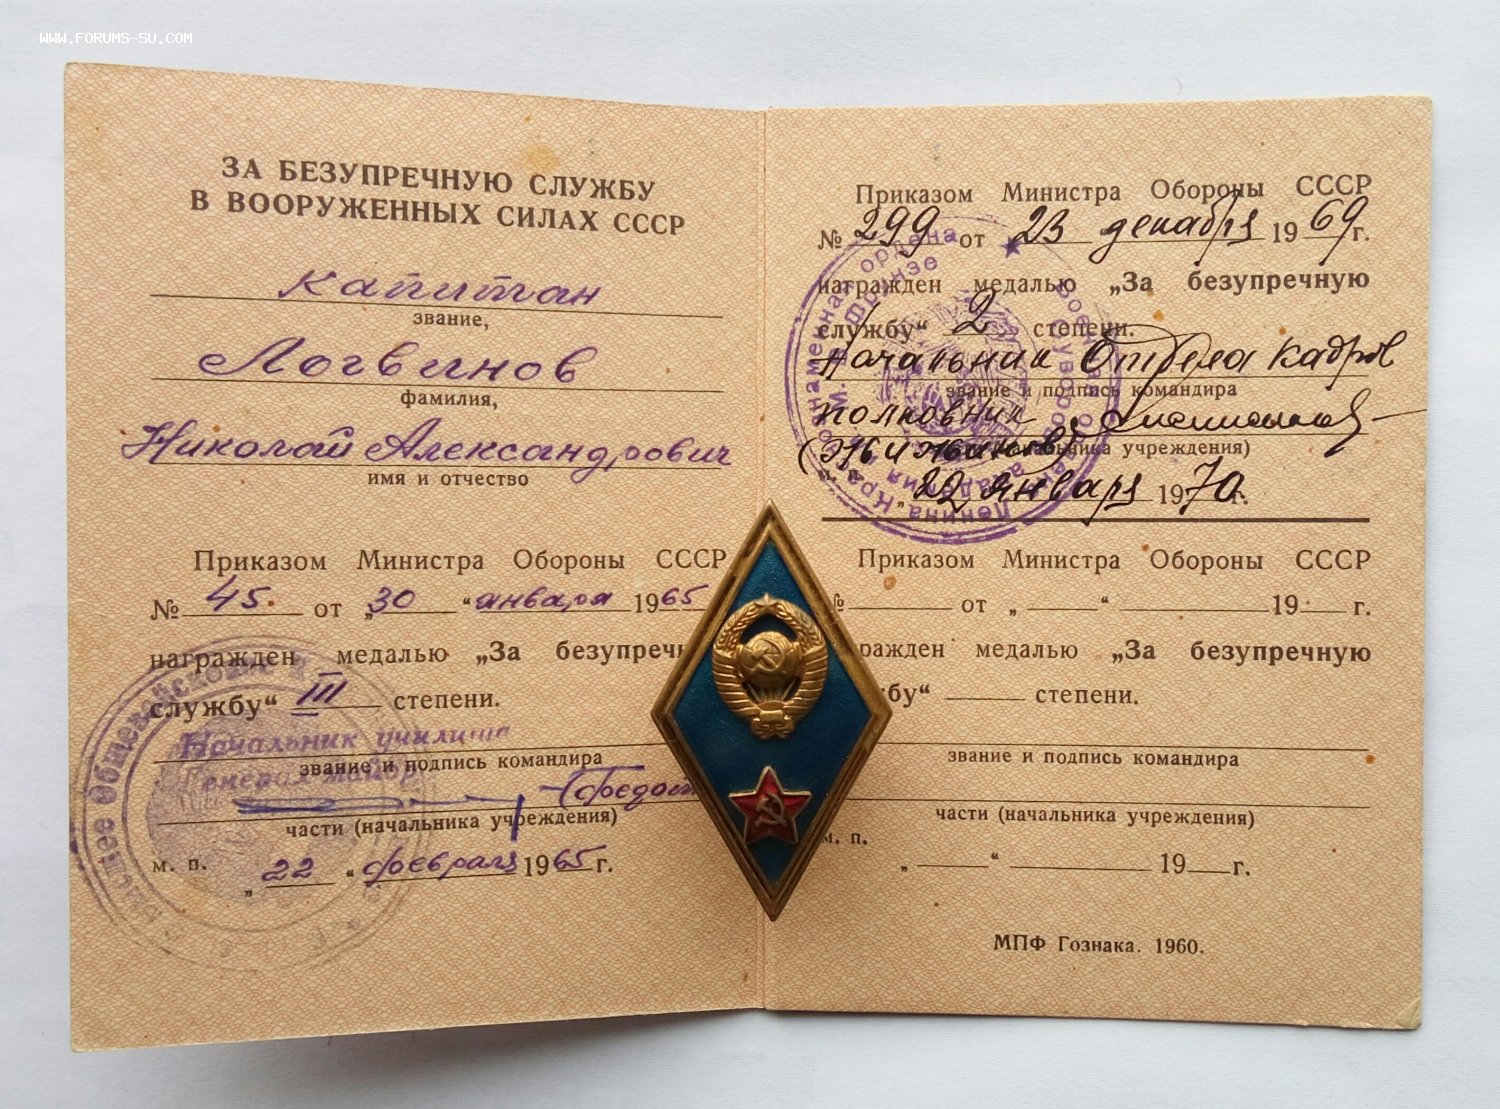 WWW.FORUMS-SU.COM
ЗА БЕЗУПРЕЧНУЮ СЛУЖБУ
В ВООРУЖЕННЫХ СИЛАХ СССР
капитан
звание,
Логвинов
фамилия,
Николай Александрович
имя и отчество
Приказом Министра Обороны СССР
№ 45. от „30 “ января 1965
награжден медалью „За безупречн
службу“ III степени.
Начальник училища
звание и подпись командира
Генерал-майор
части (начальника учреждения)
м. п.
„ 22 “ февраля 1965 г.
Приказом Министра Обороны СССР
№ 299 от 23 декабря 1969 г.
награжден медалью „За безупречную
службу“ 2 степени.
Начальник Отдела кадров
звание и подпись командира
полковник
учреждения)
„22 января 1970 г.
Приказом Министра Обороны СССР
№ от „ “ 19 г.
раждён медалью „За безупречную
бу“ степени.
звание и подпись командира
части (начальника учреждения)
м. п.
„ “ 19 г.
МПФ Гознака. 1960.